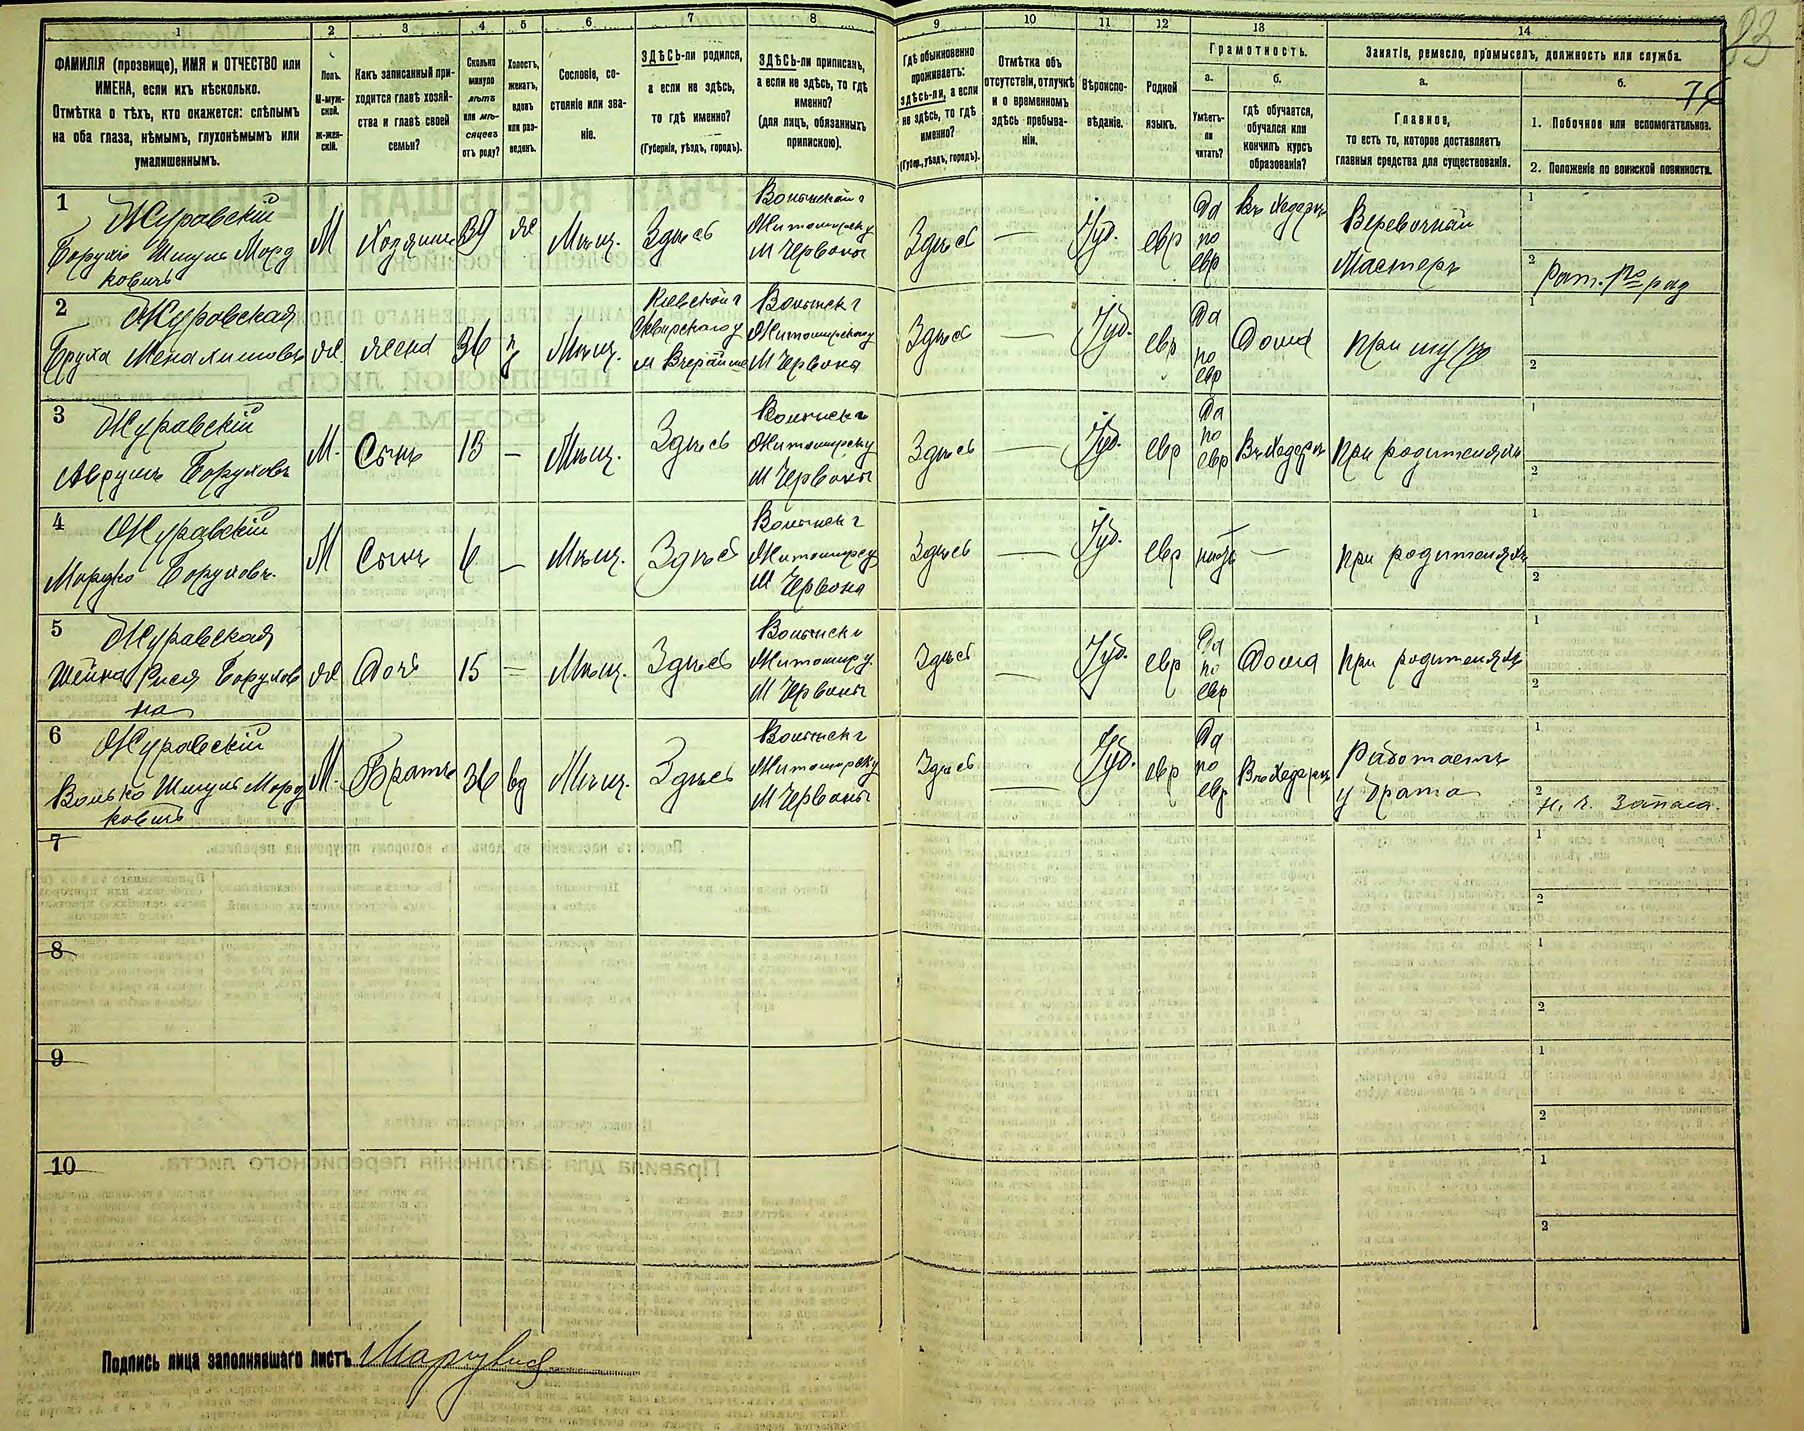 1
2
3
4
5
6
7
8
9
10
11
12
13
14
83
74
ФАМИЛІЯ (прозвище), ИМЯ и ОТЧЕСТВО или
ИМЕНА, если ихъ нѣсколько.
Отмѣтка о тѣхъ, кто окажется: слѣпымъ
на оба глаза, нѣмымъ, глухонѣмымъ или
умалишеннымъ.
Полъ.
М-муж-
ской.
ж-жен-
скій.
Какъ записанный при-
ходится главѣ хозяй-
ства и главѣ своей
семьи?
Сколько
минуло
лѣтъ
или мѣ-
сяцевъ
отъ роду?
Холостъ,
женатъ,
вдовъ
или раз-
веденъ.
Сословіе, со-
стояніе или зва-
ніе.
ЗДѢСЬ-ли родился,
а если не здѣсь,
то гдѣ именно?
(Губернія, уѣздъ, городъ).
ЗДѢСЬ-ли приписанъ,
а если не здѣсь, то гдѣ
именно?
(для лицъ, обязанныхъ
припискою).
Гдѣ обыкновенно
проживаетъ:
здѣсь-ли, а если
не здѣсь, то гдѣ
именно?
(Губер., уѣздъ, городъ).
Отмѣтка объ
отсутствіи, отлучкѣ
и о временномъ
здѣсь пребыва-
ніи.
Вѣроиспо-
вѣданіе.
Родной
языкъ.
Грамотность.
а.
Умѣетъ-
ли
читать?
б.
гдѣ обучается,
обучался или
кончилъ курсъ
образованія?
Занятіе, ремесло, промыселъ, должность или служба.
а.
Главное,
то есть то, которое доставляетъ
главныя средства для существованія.
б.
1. Побочное или вспомогательное.
2. Положеніе по воинской повинности.
1
Журавскій
Борухъ Шмуль Морд
ковичъ
М
Хозяинъ
39
же
Мѣщ.
Здѣсь
Волынской г
Житомирск у
м Червоны
Здѣсь
—
Іуд.
евр
Да
по
евр
Въ Хедерѣ
Веревочный
Мастеръ
1
2
рат. разр
2
Журавская
Бруха Менахимовъ
же
жена
36
Мѣщ.
Кіевской г
Сквирскаго у
м Вчерайше
Волынск г
Житомирскаго у
М Червона
Здѣсь
—
Іуд.
евр
Да
по
евр
Дома
при мужѣ
1
2
3
Журавскій
Аврумъ Боруховъ
М.
Сынъ
13
—
Мѣщ.
Здѣсь
Волынск г
Житомирск у
М Червоны
Здѣсь
—
Іуд.
евр
Да
по
евр
Въ Хедерѣ
при родителяхъ
1
2
4
Журавскій
Мордко Боруховъ.
М
Сынъ
6
—
Мѣщ.
Здѣсь
Волынск г
Житомирск у
М Червона
Здѣсь
—
Іуд.
евр
нѣтъ
—
при родителяхъ
1
2
5
Журавская
Шейна Рися Борухов
на
же
Дочь
15
—
Мѣщ.
Здѣсь
Волынск г
Житомир у.
М Червоны
Здѣсь
—
Іуд.
евр
Да
по
евр
Дома
при родителяхъ
1
2
6
Журавскій
Волько Шмуль Морд
ковичъ
М.
Братъ
36
вд
Мѣщ.
Здѣсь
Волынск г
Житомирск у
М Червоны
Здѣсь
—
Іуд.
евр
Да
по
евр
Въ Хедерѣ
Работаетъ
у брата
1
2
н. ч. запаса.
7
1
2
8
1
2
9
1
2
10
1
2
Подпись лица заполнявшаго листъ